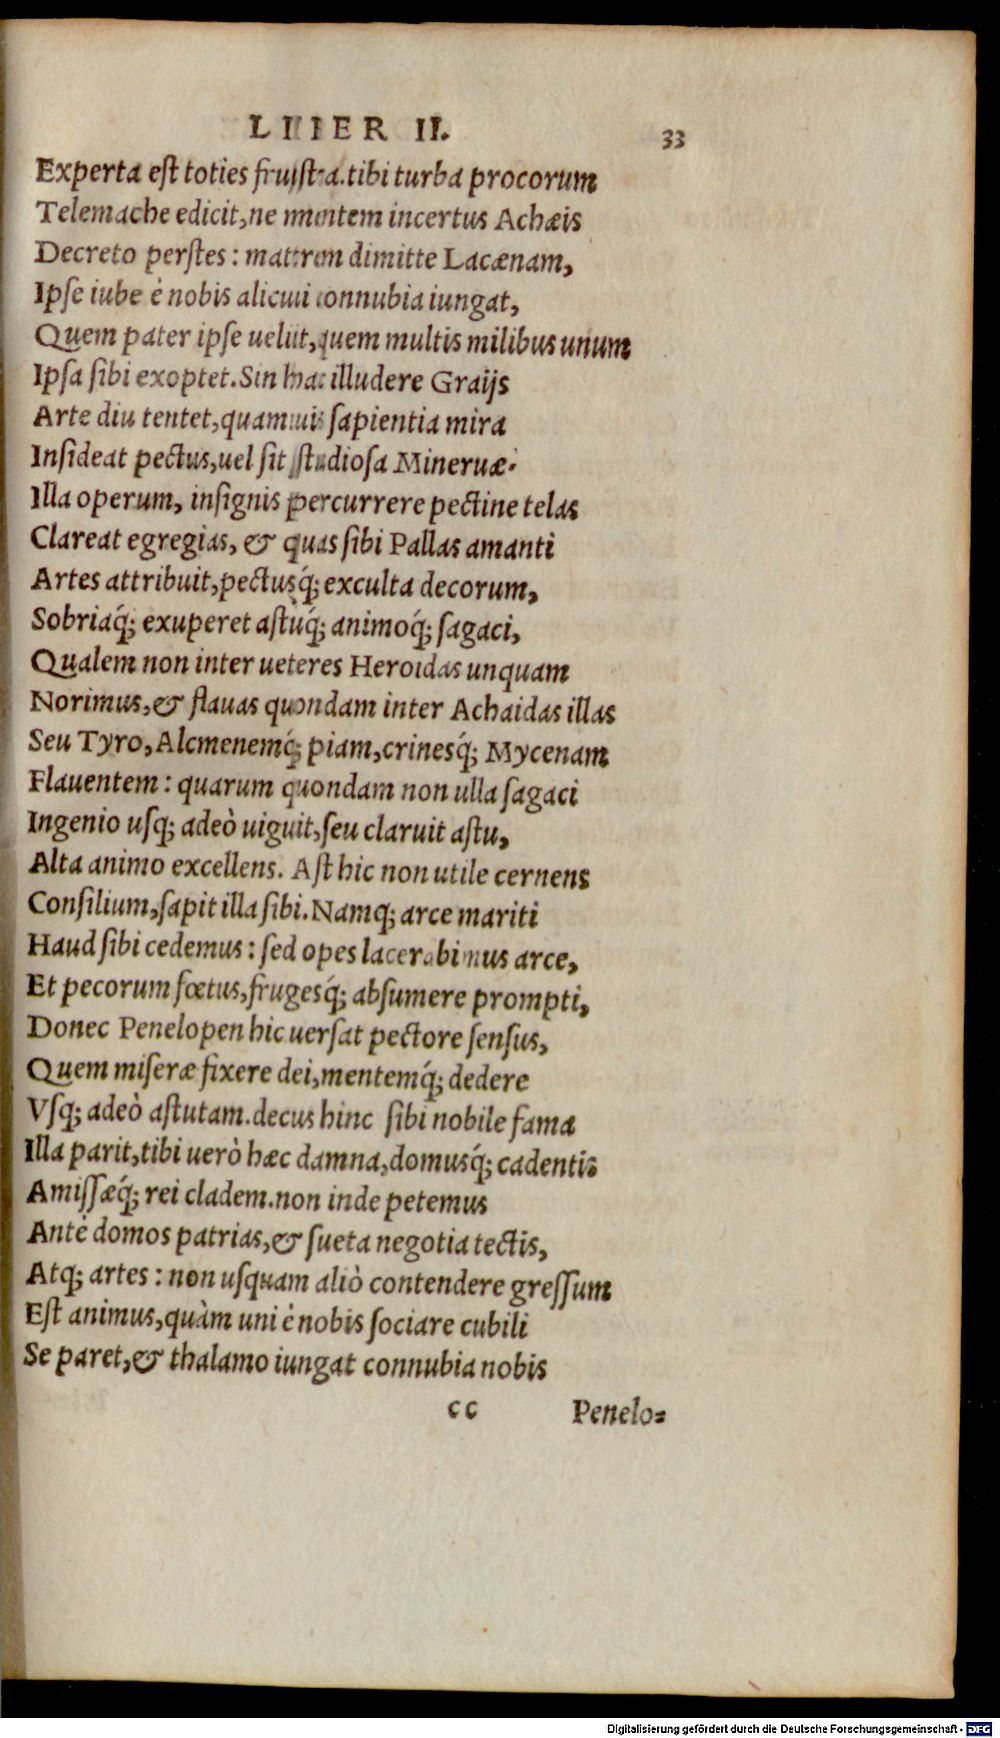 LIBER II. 33
Experta est toties frustra. tibi turba procorum
Telemache edicit, ne mentem incertus Achæis
Decreto perstes: matrem dimitte Lacænam,
Ipse iube è nobis alicui connubia iungat,
Quem pater ipse uelit, quem multis milibus unum
Ipsa sibi exoptet. Sin hac illudere Graijs
Arte diu tentet, quamuis sapientia mira
Insideat pectus, uel sit studiosa Mineruæ.
Illa operum, insignis percurrere pectine telas
Clareat egregias, & quas sibi Pallas amanti
Artes attribuit, pectusq́; exculta decorum,
Sobriaq́; exuperet astuq́; animoq́; sagaci,
Qualem non inter ueteres Heroidas unquam
Norimus, & flauas quondam inter Achaidas illas
Seu Tyro, Alcmenemq́; piam, crinesq́; Mycenam
Flauentem: quarum quondam non ulla sagaci
Ingenio usq; adeò uiguit, seu claruit astu,
Alta animo excellens. Ast hic non utile cernens
Consilium, sapit illa sibi. Namq; arce mariti
Haud sibi cedemus: sed opes lacerabimus arce,
Et pecorum fœtus, frugesq́; absumere prompti,
Donec Penelopen hic uersat pectore sensus,
Quem miseræ fixere dei, mentemq́; dedere
Vsq; adeò astutam. decus hinc sibi nobile fama
Illa parit, tibi uerò hæc damna, domusq́; cadentis
Amissæq́; rei cladem. non inde petemus
Antè domos patrias, & sueta negotia tectis,
Atq; artes: non usquam aliò contendere gressum
Est animus, quàm uni è nobis sociare cubili
Se paret, & thalamo iungat connubia nobis
cc Penelo-
Digitalisierung gefördert durch die Deutsche Forschungsgemeinschaft - DFG